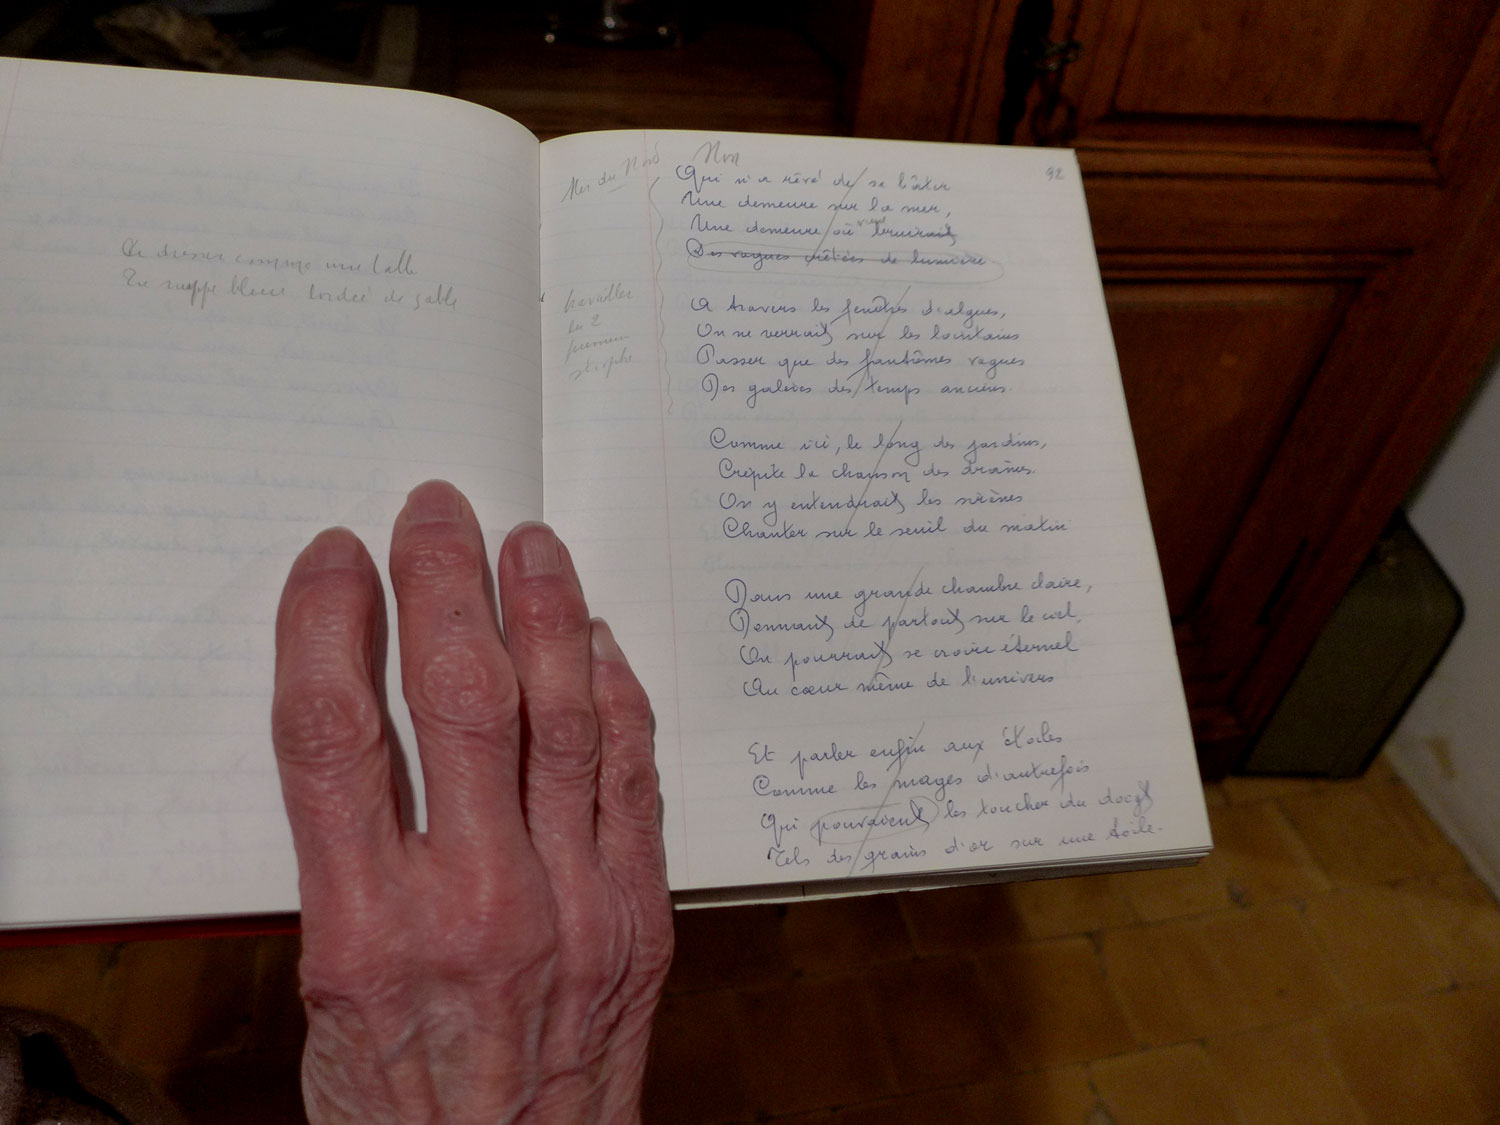 Se dresser comme une table
En nappe bleue, bordée de sable
Mer du Nord
Non
92
Qui n'a rêvé de se bâtir
Une demeure sur la mer,
Une demeure où
Des vagues crêtées de lumière
travailler
les 2
premières
strophes
A travers les fenêtres d'algues,
On ne verrait sur les lointains
Passer que des fantômes vagues
Des galères des temps anciens.
Comme ici, le long des jardins,
Crépite la chanson des draines.
On y entendrait les sirènes
Chanter sur le seuil du matin
Dans une grande chambre claire,
Donnant de partout sur le ciel,
On pourrait se croire éternel
Au cœur même de l'univers
Et parler enfin aux étoiles
Comme les mages d'autrefois
Qui pouvaient les toucher du doigt
Tels des grains d'or sur une toile.